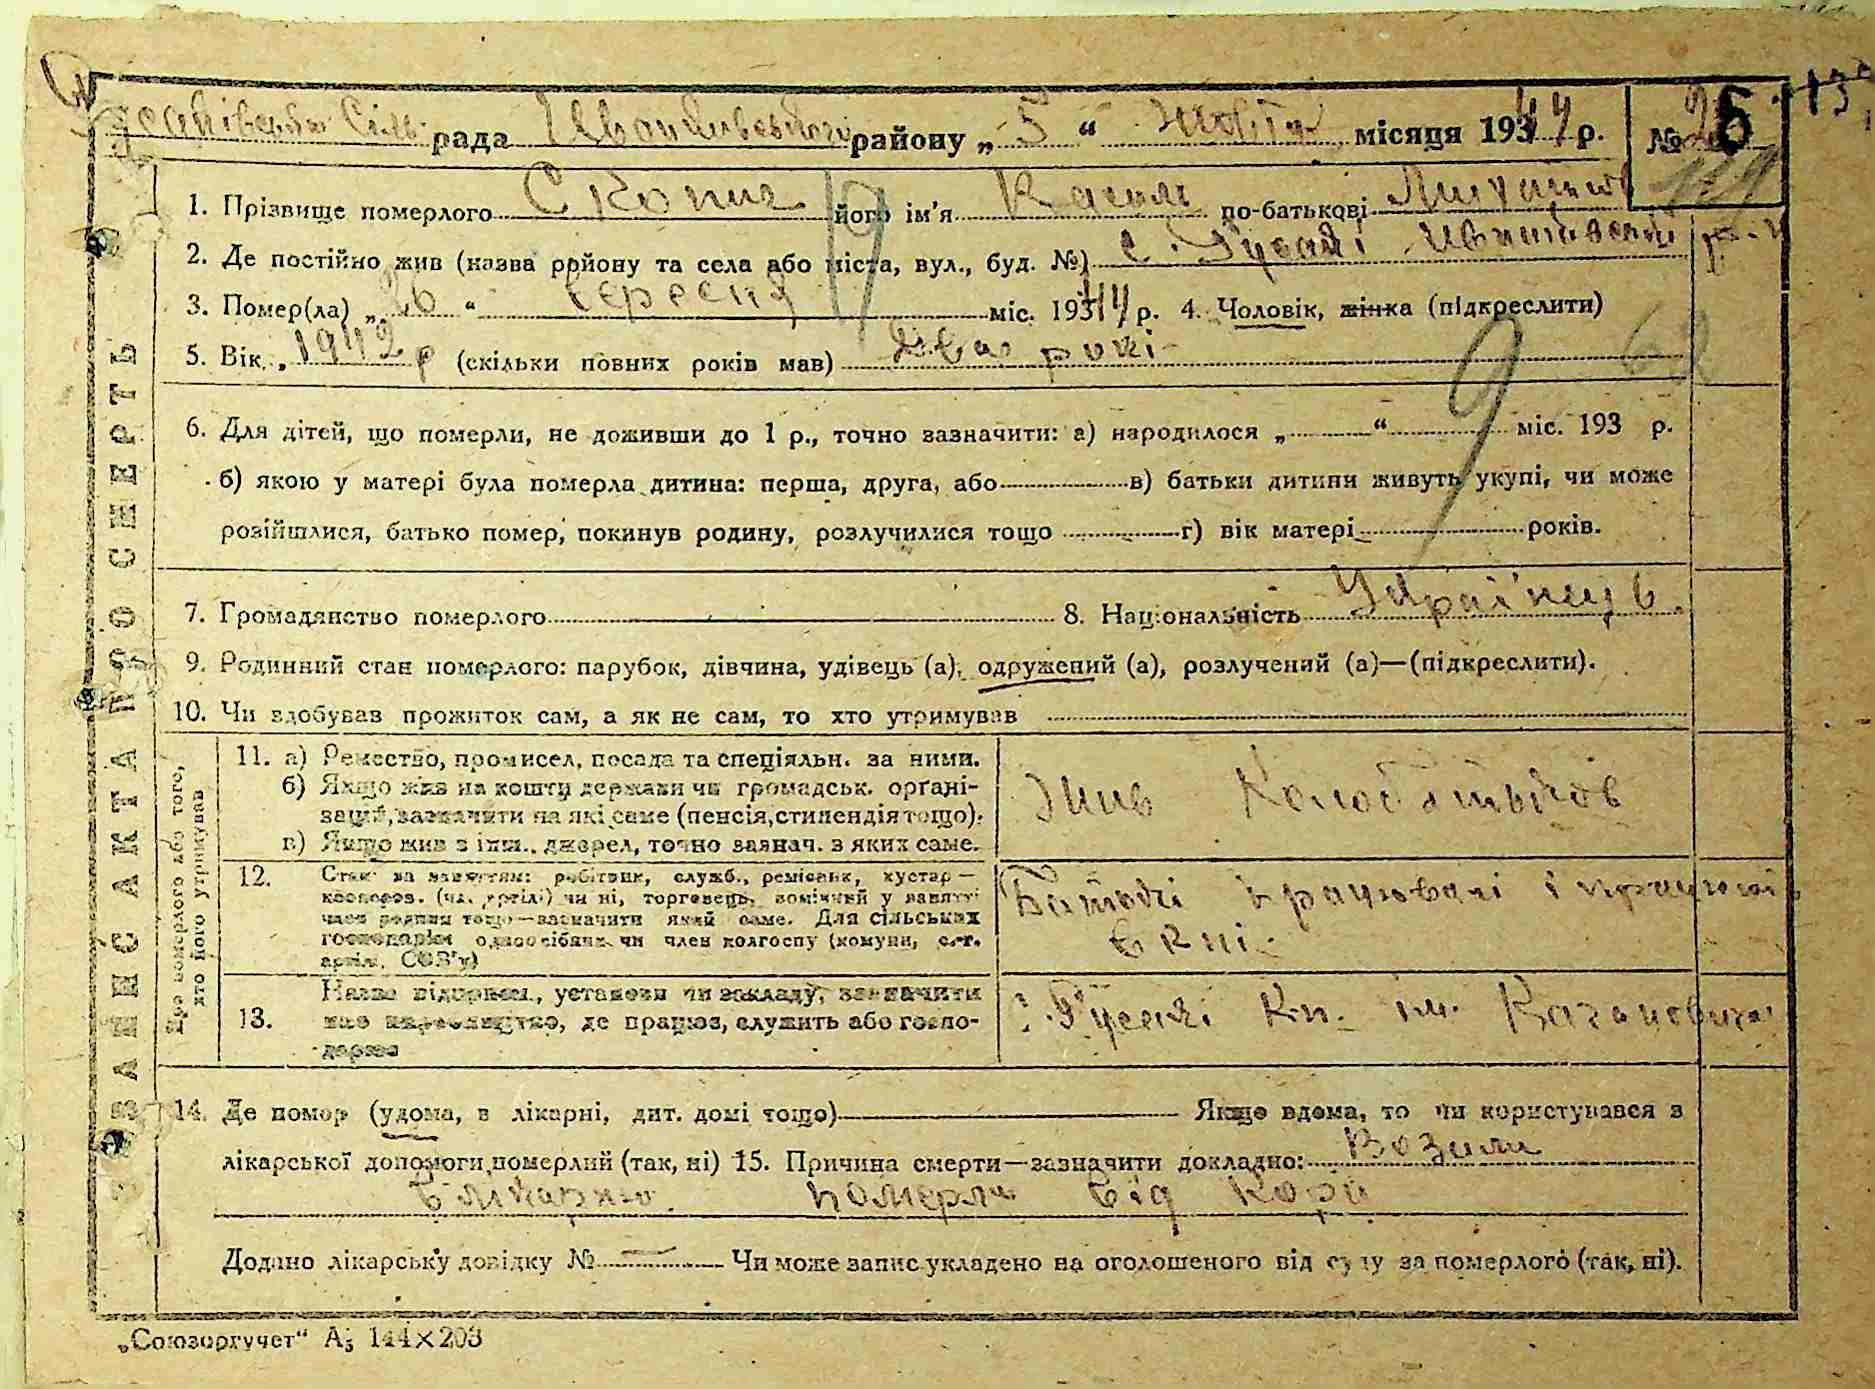 рада району „ 5 “ жовтня місяця 1944 р. № 5
1. Прізвище померлого його ім'я по-батькові
2. Де постійно жив (назва району та села або міста, вул., буд. №) с. Русакі
3. Помер(ла) „ 26 “ вересня міс. 1944 р. 4. Чоловік, жінка (підкреслити)
5. Вік „ 1942 р (скільки повних років мав) Два рокі
6. Для дітей, що померли, не доживши до 1 р., точно зазначити: а) народилося „ “ міс. 193 р.
б) якою у матері була померла дитина: перша, друга, або в) батьки дитини живуть укупі, чи може
розійшлися, батько помер, покинув родину, розлучилися тощо г) вік матері років.
7. Громадянство померлого 8. Національність Українців
9. Родинний стан померлого: парубок, дівчина, удівець (а), одружений (а), розлучений (а)—(підкреслити).
10. Чи здобував прожиток сам, а як не сам, то хто утримував
ЗАПИС АКТА ПРО СМЕРТЬ
Про померлого або того, хто його утримував
11. а) Ремество, промисел, посада та спеціяльн. за ними.
б) Якщо жив на кошти держави чи громадськ. органі-
зацій, зазначити на які саме (пенсія, стипендія тощо).
в) Якщо жив з інш. джерел, точно зазнач. з яких саме.
Жив
12. Стан за заняттям: робітник, служб., ремісник, кустар—
кооперов. (чл. артілі) чи ні, торговець, помічний у занятті
член родини тощо—зазначити який саме. Для сільських
господарів одноосібник чи член колгоспу (комуни, с.-г.
артілі, СОЗ'у)
Батькі працювалі і працюють
13. Назва підприєм., установи чи закладу, зазначити
де працює, служить або госпо-
дарює
Русакі Кп. ім. Кагановича
14. Де помер (удома, в лікарні, дит. домі тощо) Якщо вдома, то чи користувався з
лікарської допомоги померлий (так, ні) 15. Причина смерти—зазначити докладно: Возили
в лікарню померли від корі
Додано лікарську довідку № — Чи може запис укладено на оголошеного від суду за померлого (так, ні).
„Союзоргучет“ А5 144×203